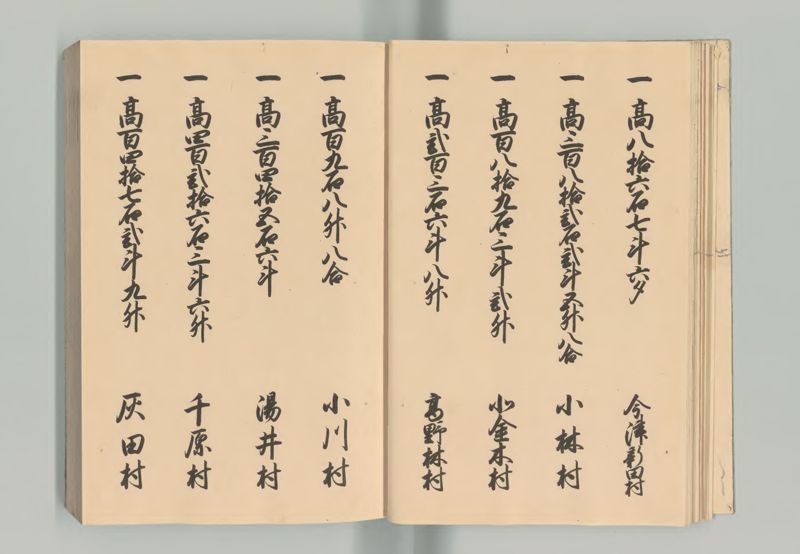 一高八拾六石七斗六夕 今津新田村
一高三百八拾弐石弐斗五升八合 小林村
一高百八拾九石三斗弐升 小金木村
一高弐百三石六斗八升 高野林村
一高百九石八升八合 小川村
一高三百四拾五石六斗 湯井村
一高四百弐拾六石三斗六升 千原村
一高百四拾七石弐斗九升 灰田村